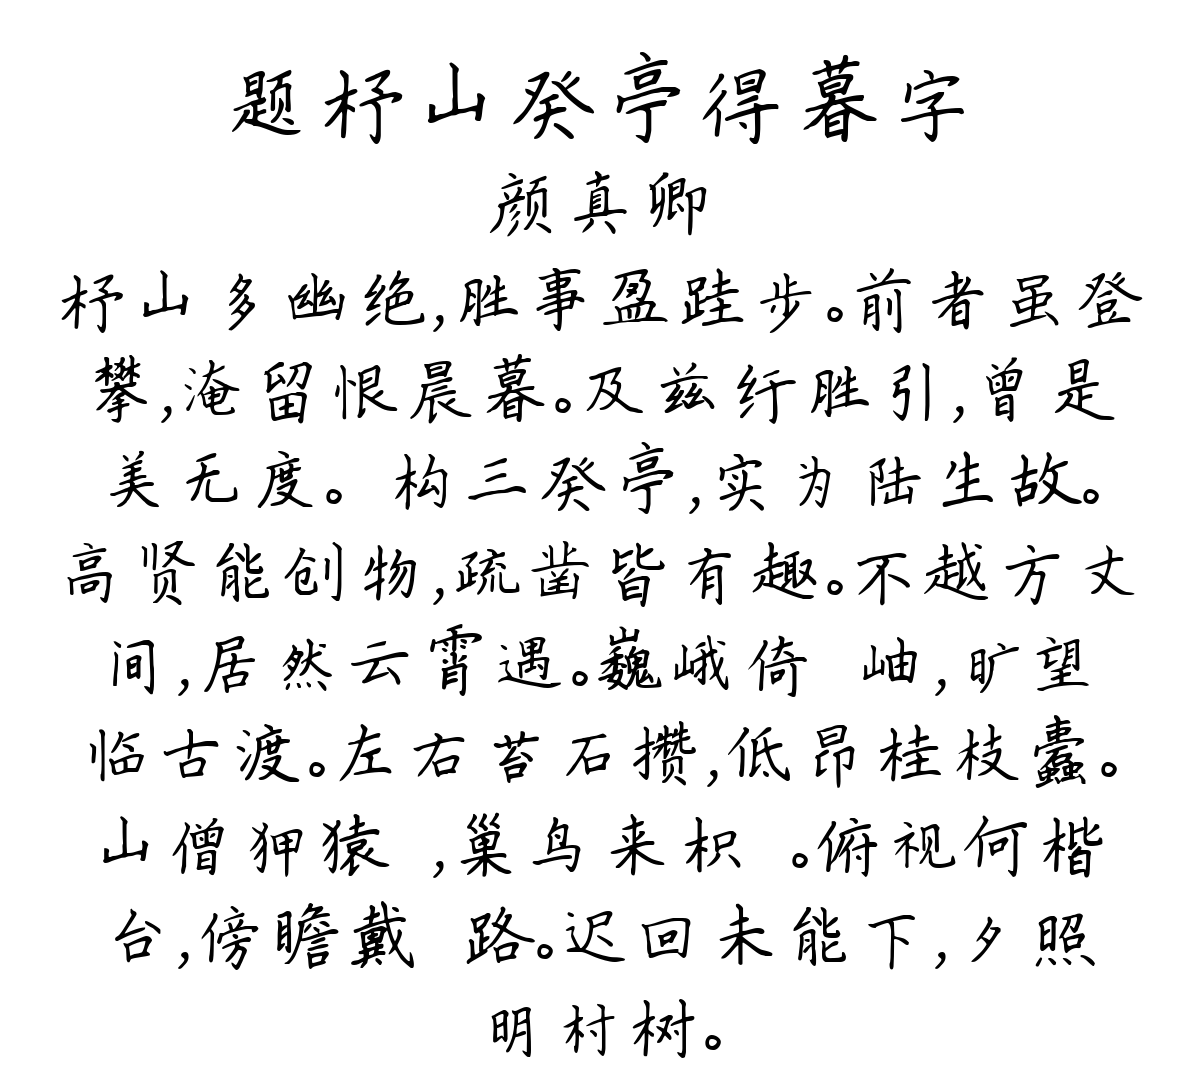 题杼山癸亭得暮字
颜真卿
杼山多幽绝,胜事盈跬步。前者虽登
攀,淹留恨晨暮。及兹纡胜引,曾是
美无度。构三癸亭,实为陆生故。
高贤能创物,疏凿皆有趣。不越方丈
间,居然云霄遇。巍峨倚 岫,旷望
临古渡。左右苔石攒,低昂桂枝蠹。
山僧狎猿 ,巢鸟来枳 。俯视何楷
台,傍瞻戴 路。迟回未能下,夕照
明村树。